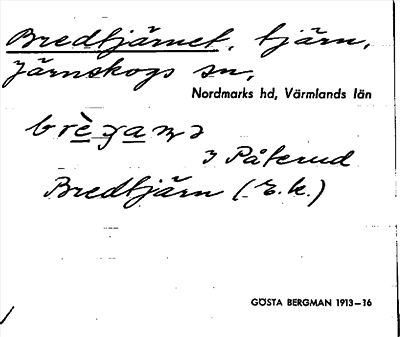 Bredtjärnet, tjärn,
Järnskogs sn,
Nordmarks hd, Värmlands län
Påterud
Bredtjärn (E.k.)
GÖSTA BERGMAN 1913–16